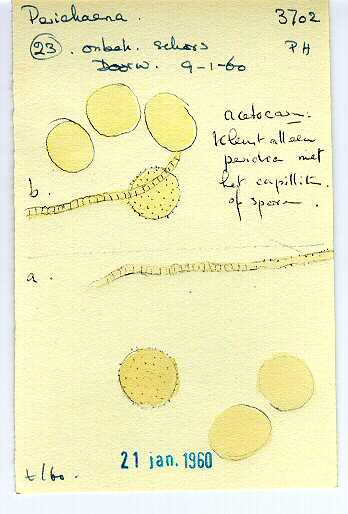 Perichaena. 3702
23. onbek. schors PH
Doorw. 9-1-60
acetocarm.
Kleurt alleen
peridia met
het capillit.
of sporen.
b.
a.
21 jan. 1960
t/60.